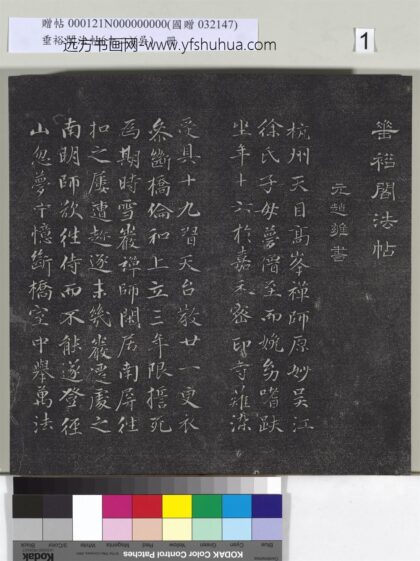 贈帖 000121N000000000(國贈 032147)
垂裕閣法帖
远方书画网-www.yfshuhua.com
冊
1
垂裕閣法帖
元趙雍書
杭州天目高峯禪師原妙吳江
徐氏子母夢僧至而娩幼嗜趺
坐年十六於嘉禾密印寺薙染
受具十九習天台教廿一更衣
参斷橋倫和上立三年限誓死
為期時雪巖禪師閑居南屏往
扣之屢遭趁逐未幾巖遷處之
南明師欲往侍而不能遂登徑
山忽夢中憶斷橋室中舉萬法
Blue
Cyan
Green
Yellow
Red
Magenta
White
3/Color
Black
KODAK Color Control Patches
Kodak